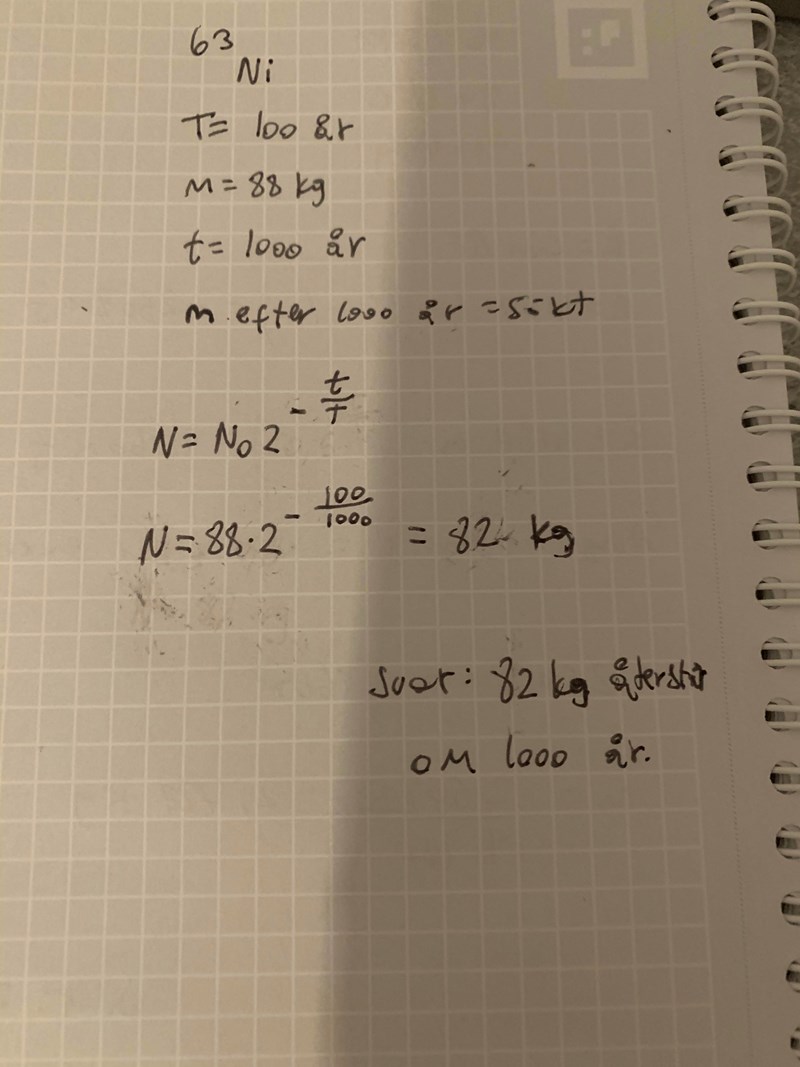 63
Ni
T= 100 år
m = 88 kg
t = 1000 år
m efter 1000 år = sökt
N = N₀ 2^(-t/T)
N = 88·2^(-100/1000) = 82 kg
Svar: 82 kg återstår
om 1000 år.